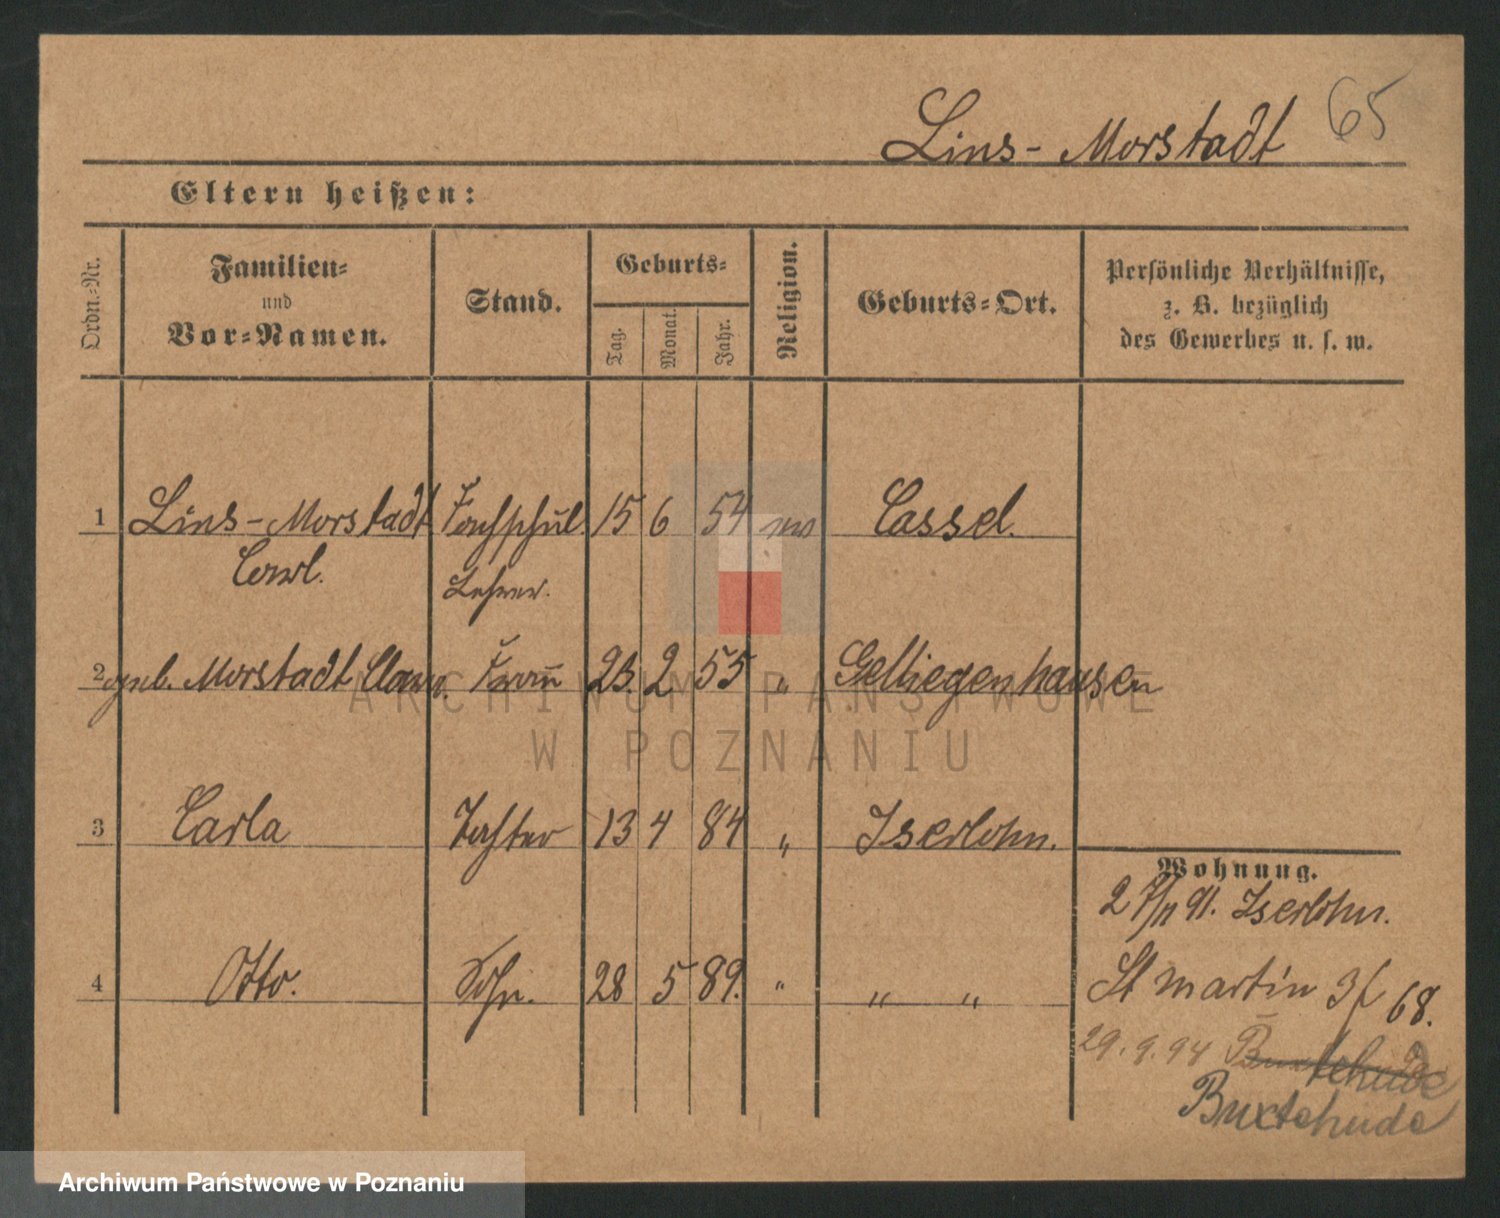 65
Lins-Morstadt
Eltern heißen:
Ordn.-Nr.
Familien-
und
Vor-Namen.
Stand.
Geburts-
Tag.
Monat.
Jahr.
Religion.
Geburts-Ort.
Persönliche Verhältnisse,
z. B. bezüglich
des Gewerbes u. s. w.
1 Lins-Morstadt Fachschul 15 6 54 Cassel.
Carl. Lehrer.
2 geb. Morstadt Clara. Frau 23. 2 55 " Gelliegenhausen
3 Carla Tochter 13 4 84 " Iserlohn.
4 Otto. Sohn. 28 5 89. " " "
Wohnung.
2 7/11 91. Iserlohn.
St Martin 68.
29.9.94 Buxtehude
Buxtehude
ARCHIWUM PAŃSTWOWE
W POZNANIU
Archiwum Państwowe w Poznaniu